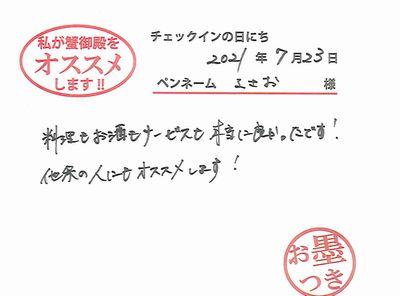 私が蟹御殿を
オススメ
します!!
チェックインの日にち
2021年7月23日
ペンネーム よさお 様
料理もお酒もサービスも本当に良かったです!
他県の人にもオススメします!
お墨
つき